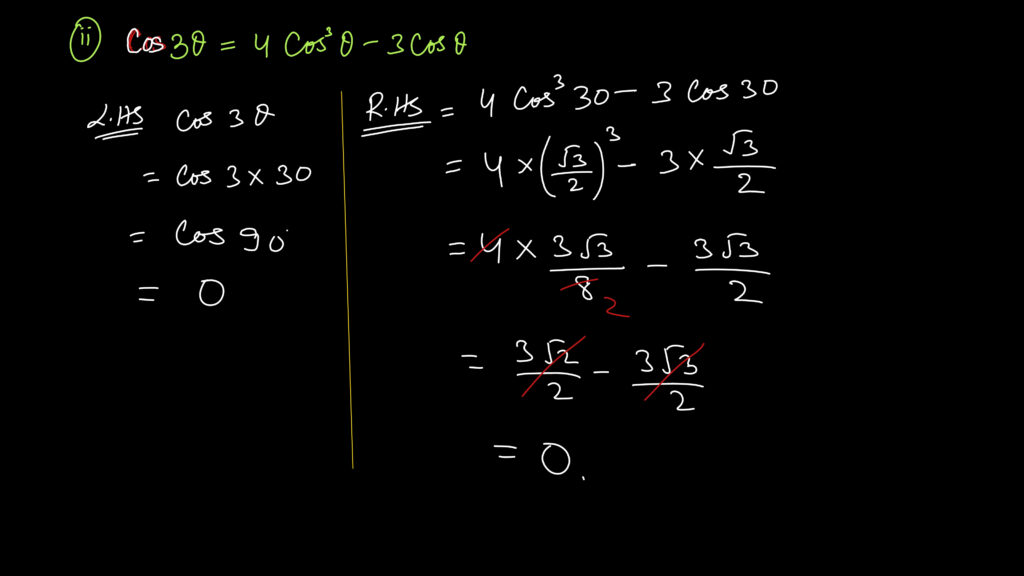 ii Cos 3θ = 4 Cos³θ − 3 Cosθ
L.HS Cos 3θ
= Cos 3 × 30
= Cos 90°
= 0
R.HS = 4 Cos³ 30 − 3 Cos 30
= 4 × (√3/2)³ − 3 × √3/2
= 4 × 3√3/8 2 − 3√3/2
= 3√2/2 − 3√3/2
= 0.